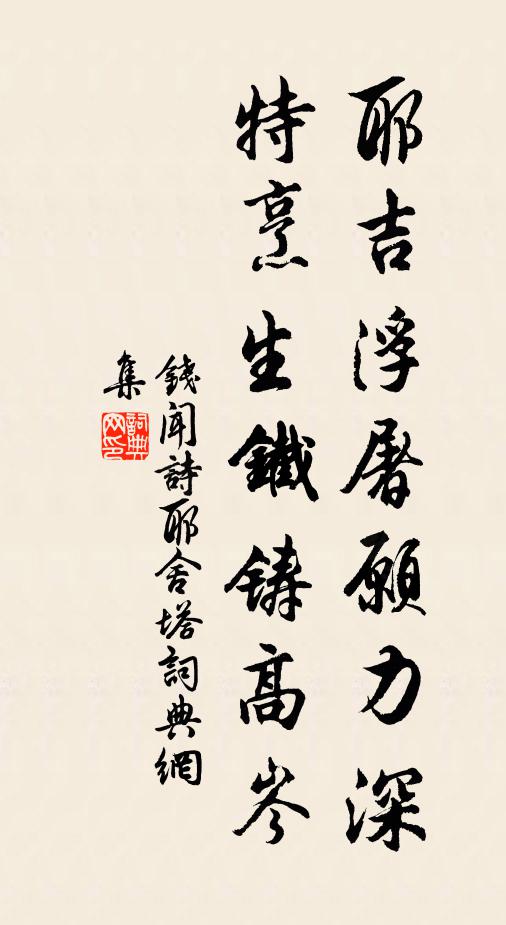 耶吉浮屠願力深
特烹生鐵鑄高岑
錢聞詩耶舍塔詞典網
集
詞典網印